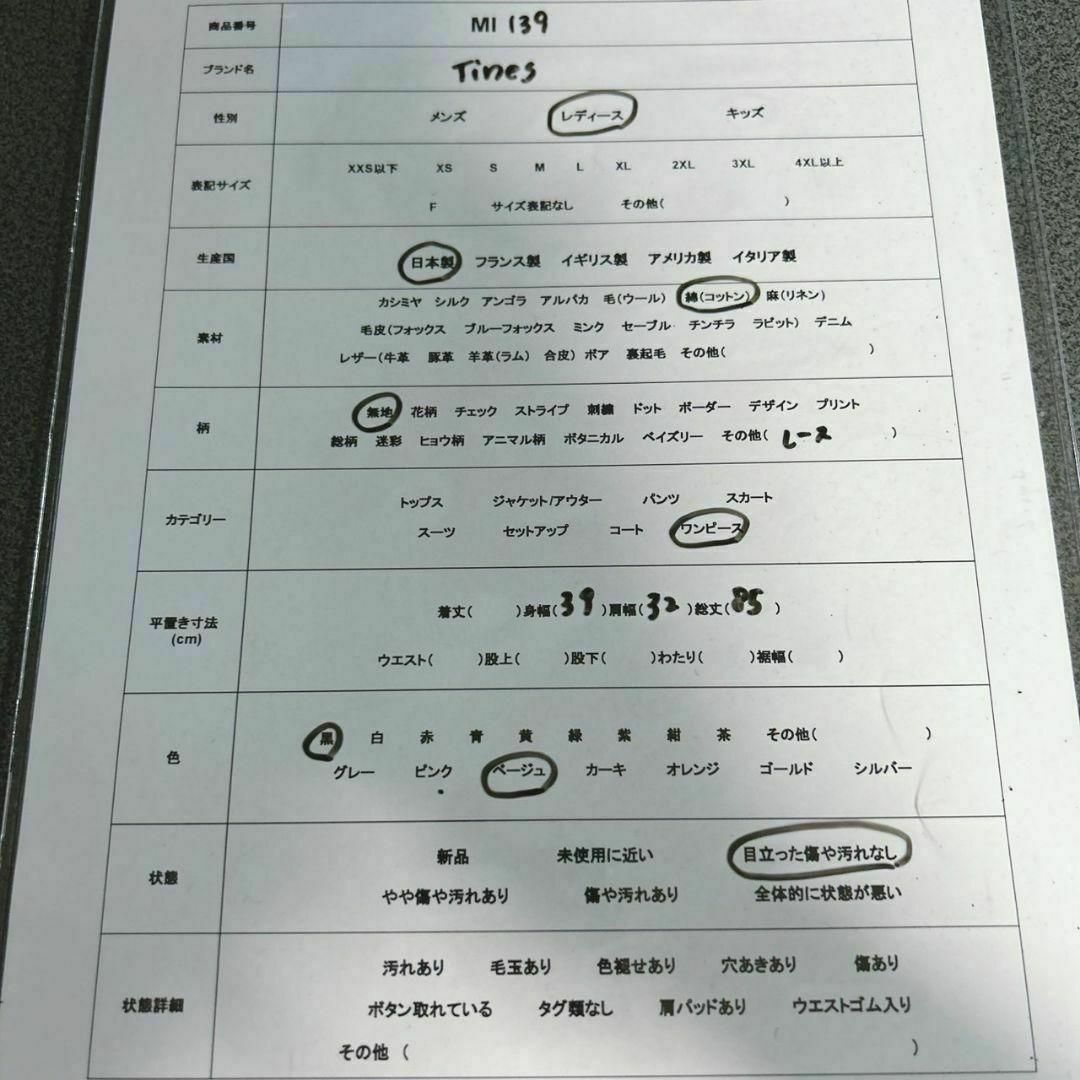 商品番号 MI 139
ブランド名 Tines
性別 メンズ レディース キッズ
表記サイズ XXS以下 XS S M L XL 2XL 3XL 4XL以上
F サイズ表記なし その他( )
生産国 日本製 フランス製 イギリス製 アメリカ製 イタリア製
カシミヤ シルク アンゴラ アルパカ 毛(ウール) 綿(コットン) 麻(リネン)
素材 毛皮(フォックス ブルーフォックス ミンク セーブル チンチラ ラビット) デニム
レザー(牛革 豚革 羊革(ラム) 合皮) ボア 裏起毛 その他( )
柄 無地 花柄 チェック ストライプ 刺繍 ドット ボーダー デザイン プリント
総柄 迷彩 ヒョウ柄 アニマル柄 ボタニカル ペイズリー その他( レース )
カテゴリー トップス ジャケット/アウター パンツ スカート
スーツ セットアップ コート ワンピース
平置き寸法 着丈( )身幅(39)肩幅(32)総丈(85 )
(cm)
ウエスト( )股上( )股下( )わたり( )裾幅( )
色 黒 白 赤 青 黄 緑 紫 紺 茶 その他( )
グレー ピンク ベージュ カーキ オレンジ ゴールド シルバー
状態 新品 未使用に近い 目立った傷や汚れなし
やや傷や汚れあり 傷や汚れあり 全体的に状態が悪い
汚れあり 毛玉あり 色褪せあり 穴あきあり 傷あり
状態詳細 ボタン取れている タグ類なし 肩パッドあり ウエストゴム入り
その他 ( )